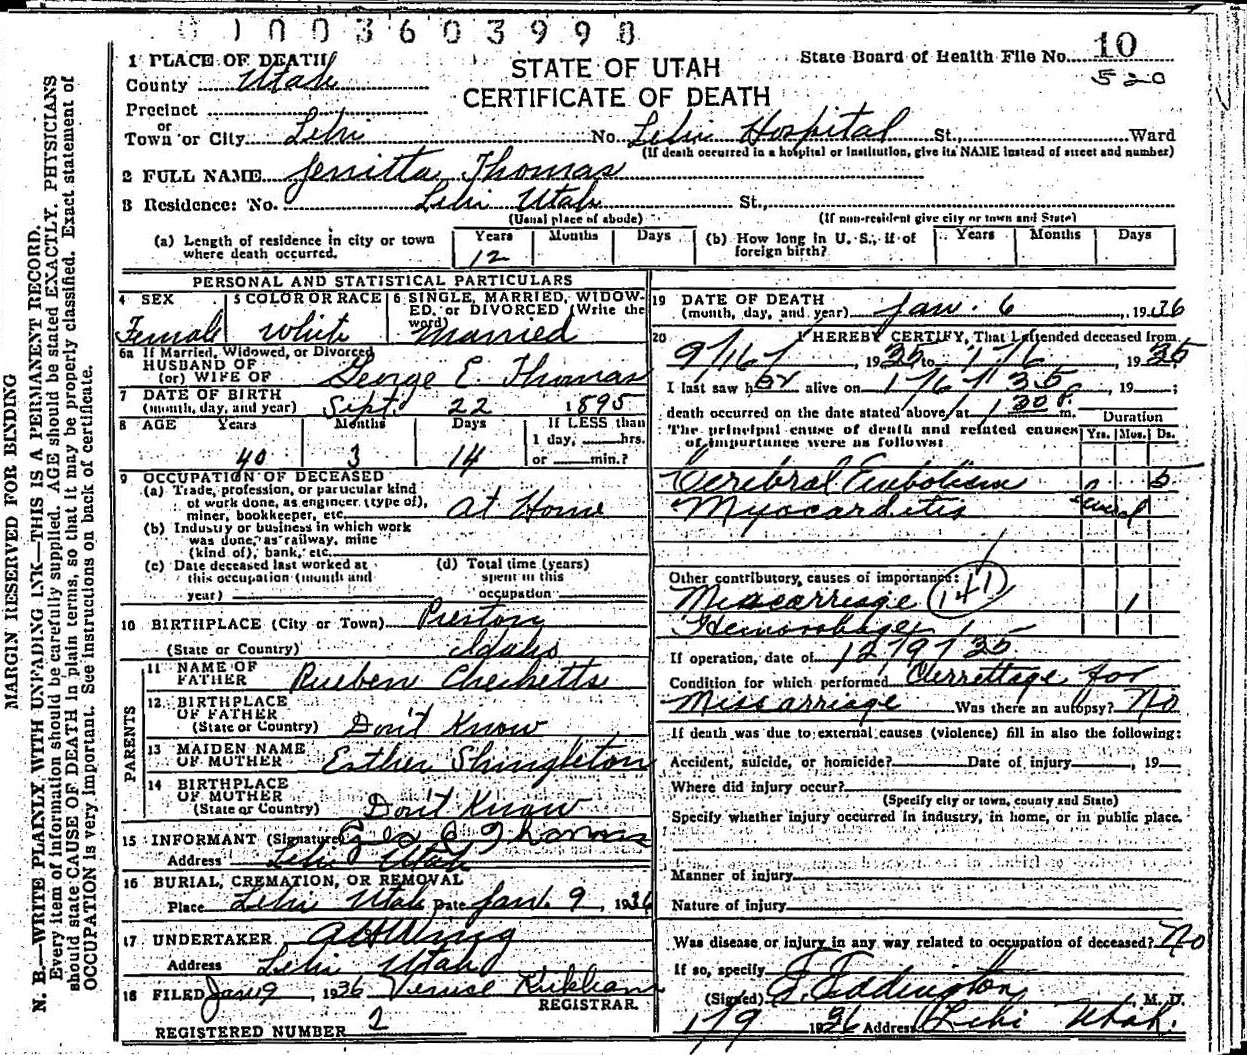 01003603998
1 PLACE OF DEATH
County Utah
STATE OF UTAH
CERTIFICATE OF DEATH
State Board of Health File No. 10
520
Precinct
or
Town or City Lehi No. Lehi Hospital St., Ward
(If death occurred in a hospital or institution, give its NAME instead of street and number)
2 FULL NAME Jerritta Thomas
3 Residence: No. Lehi Utah St.,
(Usual place of abode) (If non-resident give city or town and State)
(a) Length of residence in city or town where death occurred. Years 12 Months Days
(b) How long in U. S., if of foreign birth? Years Months Days
PERSONAL AND STATISTICAL PARTICULARS
4 SEX Female
5 COLOR OR RACE White
6 SINGLE, MARRIED, WIDOWED, or DIVORCED (Write the word) Married
6a If Married, Widowed, or Divorced
HUSBAND OF
(or) WIFE OF George E. Thomas
7 DATE OF BIRTH
(month, day, and year) Sept. 22 1895
8 AGE Years Months Days If LESS than
1 day, hrs.
40 3 14 or min.?
9 OCCUPATION OF DECEASED
(a) Trade, profession, or particular kind
of work done, as engineer (type of),
miner, bookkeeper, etc. At Home
(b) Industry or business in which work
was done, as railway, mine
(kind of), bank, etc.
(c) Date deceased last worked at
this occupation (month and
year)
(d) Total time (years)
spent in this
occupation
10 BIRTHPLACE (City or Town) Preston
(State or Country) Idaho
PARENTS
11 NAME OF
FATHER Rueben Checketts
12 BIRTHPLACE
OF FATHER
(State or Country) Don't Know
13 MAIDEN NAME
OF MOTHER Esther Shingleton
14 BIRTHPLACE
OF MOTHER
(State or Country) Don't Know
15 INFORMANT (Signature) Geo E Thomas
Address Lehi Utah
16 BURIAL, CREMATION, OR REMOVAL
Place Lehi Utah Date Jan. 9, 1936
17 UNDERTAKER
Address Lehi Utah
18 FILED Jan 9, 1936
REGISTRAR.
REGISTERED NUMBER 2
19 DATE OF DEATH
(month, day, and year) Jan. 6, 1936
20 I HEREBY CERTIFY, That I attended deceased from
9/16/, 1935 to 1/6, 1935
I last saw her alive on 1/6/35, 19 ;
death occurred on the date stated above, at 1 30 P. m.
The principal cause of death and related causes
of importance were as follows:
Duration
Yrs. Mos. Ds.
Cerebral Embolism 5
Myocarditis Several
Other contributory causes of importance:
Miscarriage 141 1
Hemorrhage
If operation, date of 12/9/35
Condition for which performed Currettage for
Miscarriage Was there an autopsy? No
If death was due to external causes (violence) fill in also the following:
Accident, suicide, or homicide? Date of injury , 19
Where did injury occur?
(Specify city or town, county and State)
Specify whether injury occurred in industry, in home, or in public place.
Manner of injury
Nature of injury
Was disease or injury in any way related to occupation of deceased? No
If so, specify
(Signed) Eddington, M. D.
1/9 1936 Address Lehi Utah.
MARGIN RESERVED FOR BINDING
N. B.—WRITE PLAINLY, WITH UNFADING INK—THIS IS A PERMANENT RECORD.
Every item of information should be carefully supplied. AGE should be stated EXACTLY. PHYSICIANS
should state CAUSE OF DEATH in plain terms, so that it may be properly classified. Exact statement of
OCCUPATION is very important. See instructions on back of certificate.